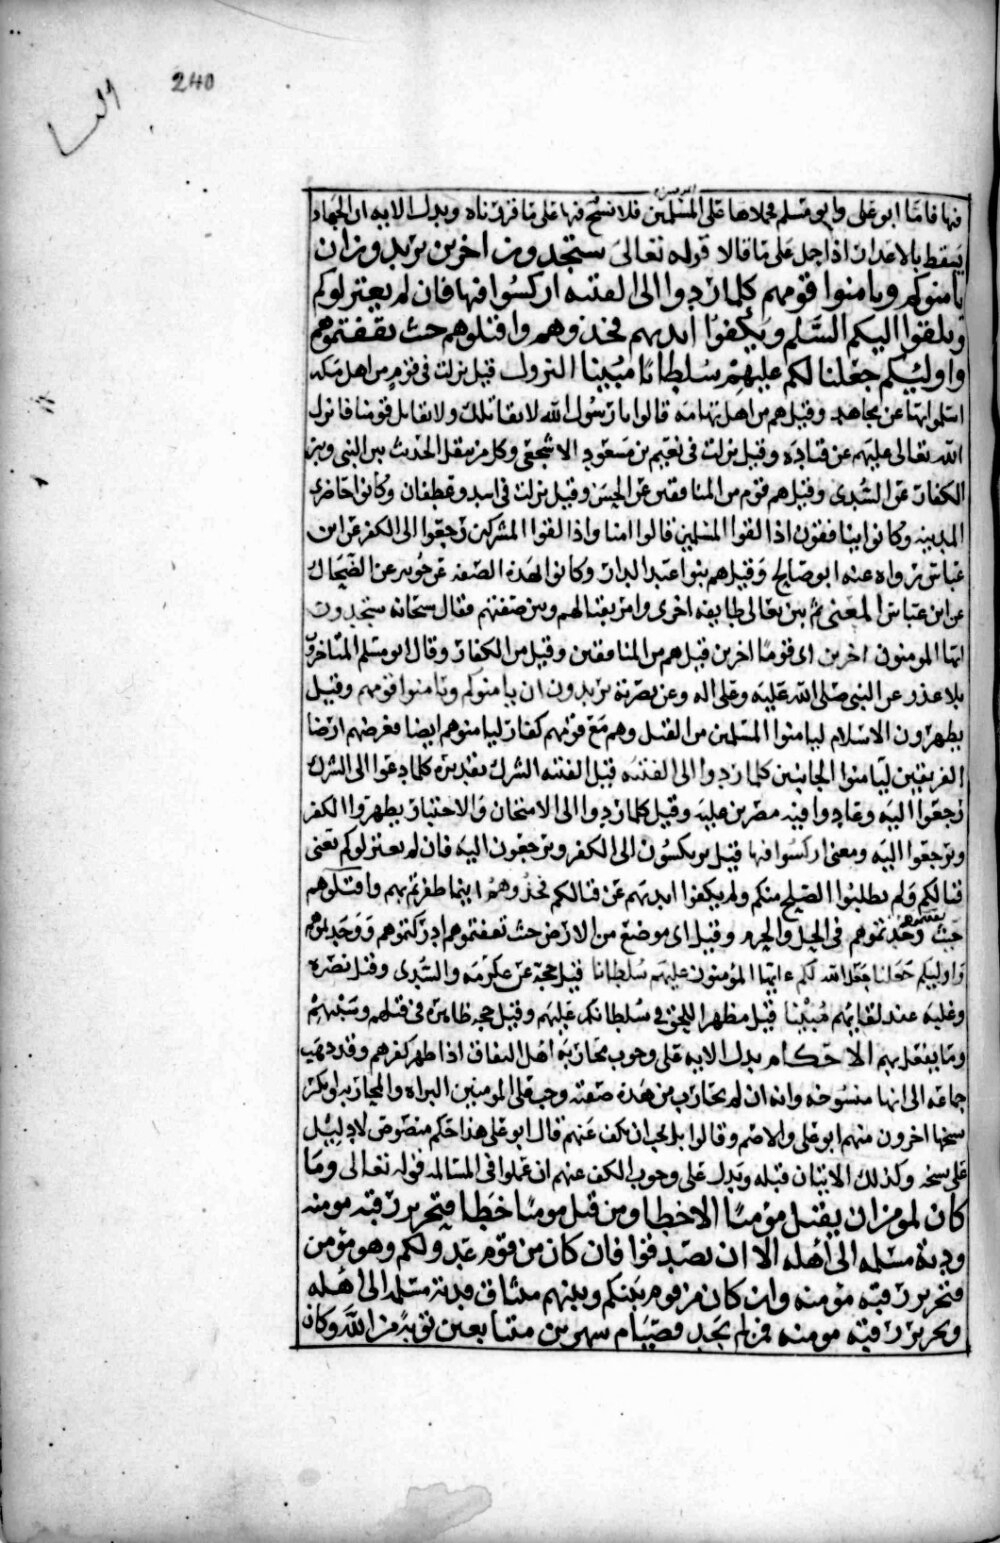 240
النسا
فيها فاما ابو علي وابو مسلم فحملاها على المسلمين فلا نسخ فيها على ما قررناه ويدل الايه ان الجهاد
يسقط بالاعذار اذا حمل على ما قالا قوله تعالى ستجدون اخرين يريدون ان
يامنوكم ويامنوا قومهم كلما ردوا الى الفتنه اركسوا فيها فان لم يعتزلوكم
ويلقوا اليكم السلم ويكفوا ايديهم فخذوهم واقتلوهم حيث ثقفتموهم
واوليكم جعلنا لكم عليهم سلطانا مبينا النزول قيل نزلت في قوم من اهل مكه
اسلموا عن مجاهد وقيل هم من اهل تهامه قالوا يا رسول الله لا نقاتلك ولا نقاتل قومنا فانزل
الله تعالى عليهم عن قتاده وقيل نزلت في نعيم بن مسعود الاشجعي وكان ينقل الحديث بين النبي وبين
الكفار عن السدي وقيل هم قوم من المنافقين عن الحسن وقيل نزلت في اسد وغطفان وكانوا حاضري
المدينه وكانوا ينافقون اذا لقوا المسلمين قالوا امنا واذا لقوا المشركين رجعوا الى الكفر عن ابن
عباس رواه عنه ابو صالح وقيل هم بنوا عبد الدار وكانوا بهذه الصفه عن جويبر عن الضحاك
عن ابن عباس المعنى ثم بين تعالى طايفه اخرى وامر بقتالهم وبين صفتهم فقال سبحانه ستجدون
ايها المومنون اخرين اي قوما اخرين قيل هم من المنافقين وقيل من الكفار وقال ابو مسلم المتاخرون
بلا عذر عن النبي صلى الله عليه وعلى اله وعن نصرته يريدون ان يامنوكم ويامنوا قومهم وقيل
يظهرون الاسلام ليامنوا المسلمين من القتل وهم مع قومهم كفار ليامنوهم ايضا فغرضهم ارضا
الفريقين ليامنوا الجانبين كلما ردوا الى الفتنه قيل الفتنه الشرك تقديره كلما دعوا الى الشرك
رجعوا اليه وعادوا فيه مصرين عليه وقيل كلما ردوا الى الامتحان والاختبار يظهروا الكفر
ويرجعوا اليه ومعنى اركسوا فيها قيل يركسون الى الكفر ويرجعون اليه فان لم يعتزلوكم يعني
قتالكم ولم يطلبوا الصلح منكم ولم يكفوا ايديهم عن قتالكم فخذوهم اينما ظفرتم بهم واقتلوهم
حيث وجدتموهم في الحل والحرم وقيل اي موضع من الارض حيث ثقفتموهم ادركتموهم ووجدتموهم
واوليكم جعلنا جعل الله لكم ايها المومنون عليهم سلطانا قيل حجة عن عكرمه والسدي وقيل نصره
وغلبه عند لقايهم مبينا قيل مظهرا للحق في سلطانكم عليهم وقيل حجه ظاهره في قتلهم وسبيهم
وما يفعل بهم الاحكام يدل الايه على وجوب محاربه اهل النفاق اذا ظهر كفرهم وقد ذهب
جماعه الى انها منسوخه وانه ان لم يحارب من هذه صفته وجب على المومنين البراه والمحاربه وانكر
نسخها اخرون منهم ابو علي والاصم وقالوا بل يجب ان نكف عنهم قال ابو علي هذا حكم منصوص لا دليل
على نسخه وكذلك الايتان قبله ويدل على وجوب الكف عنهم ان دخلوا في المسالمه قوله تعالى وما
كان لمومن ان يقتل مؤمنا الا خطا ومن قتل مومنا خطا فتحرير رقبه مومنه
ودية مسلمه الى اهله الا ان يصدقوا فان كان من قوم عدو لكم وهو مؤمن
فتحرير رقبه مومنه وان كان من قوم بينكم وبينهم ميثاق فدية مسلمه الى اهله
وتحرير رقبه مومنه فمن لم يجد فصيام شهرين متتابعين توبة من الله وكان